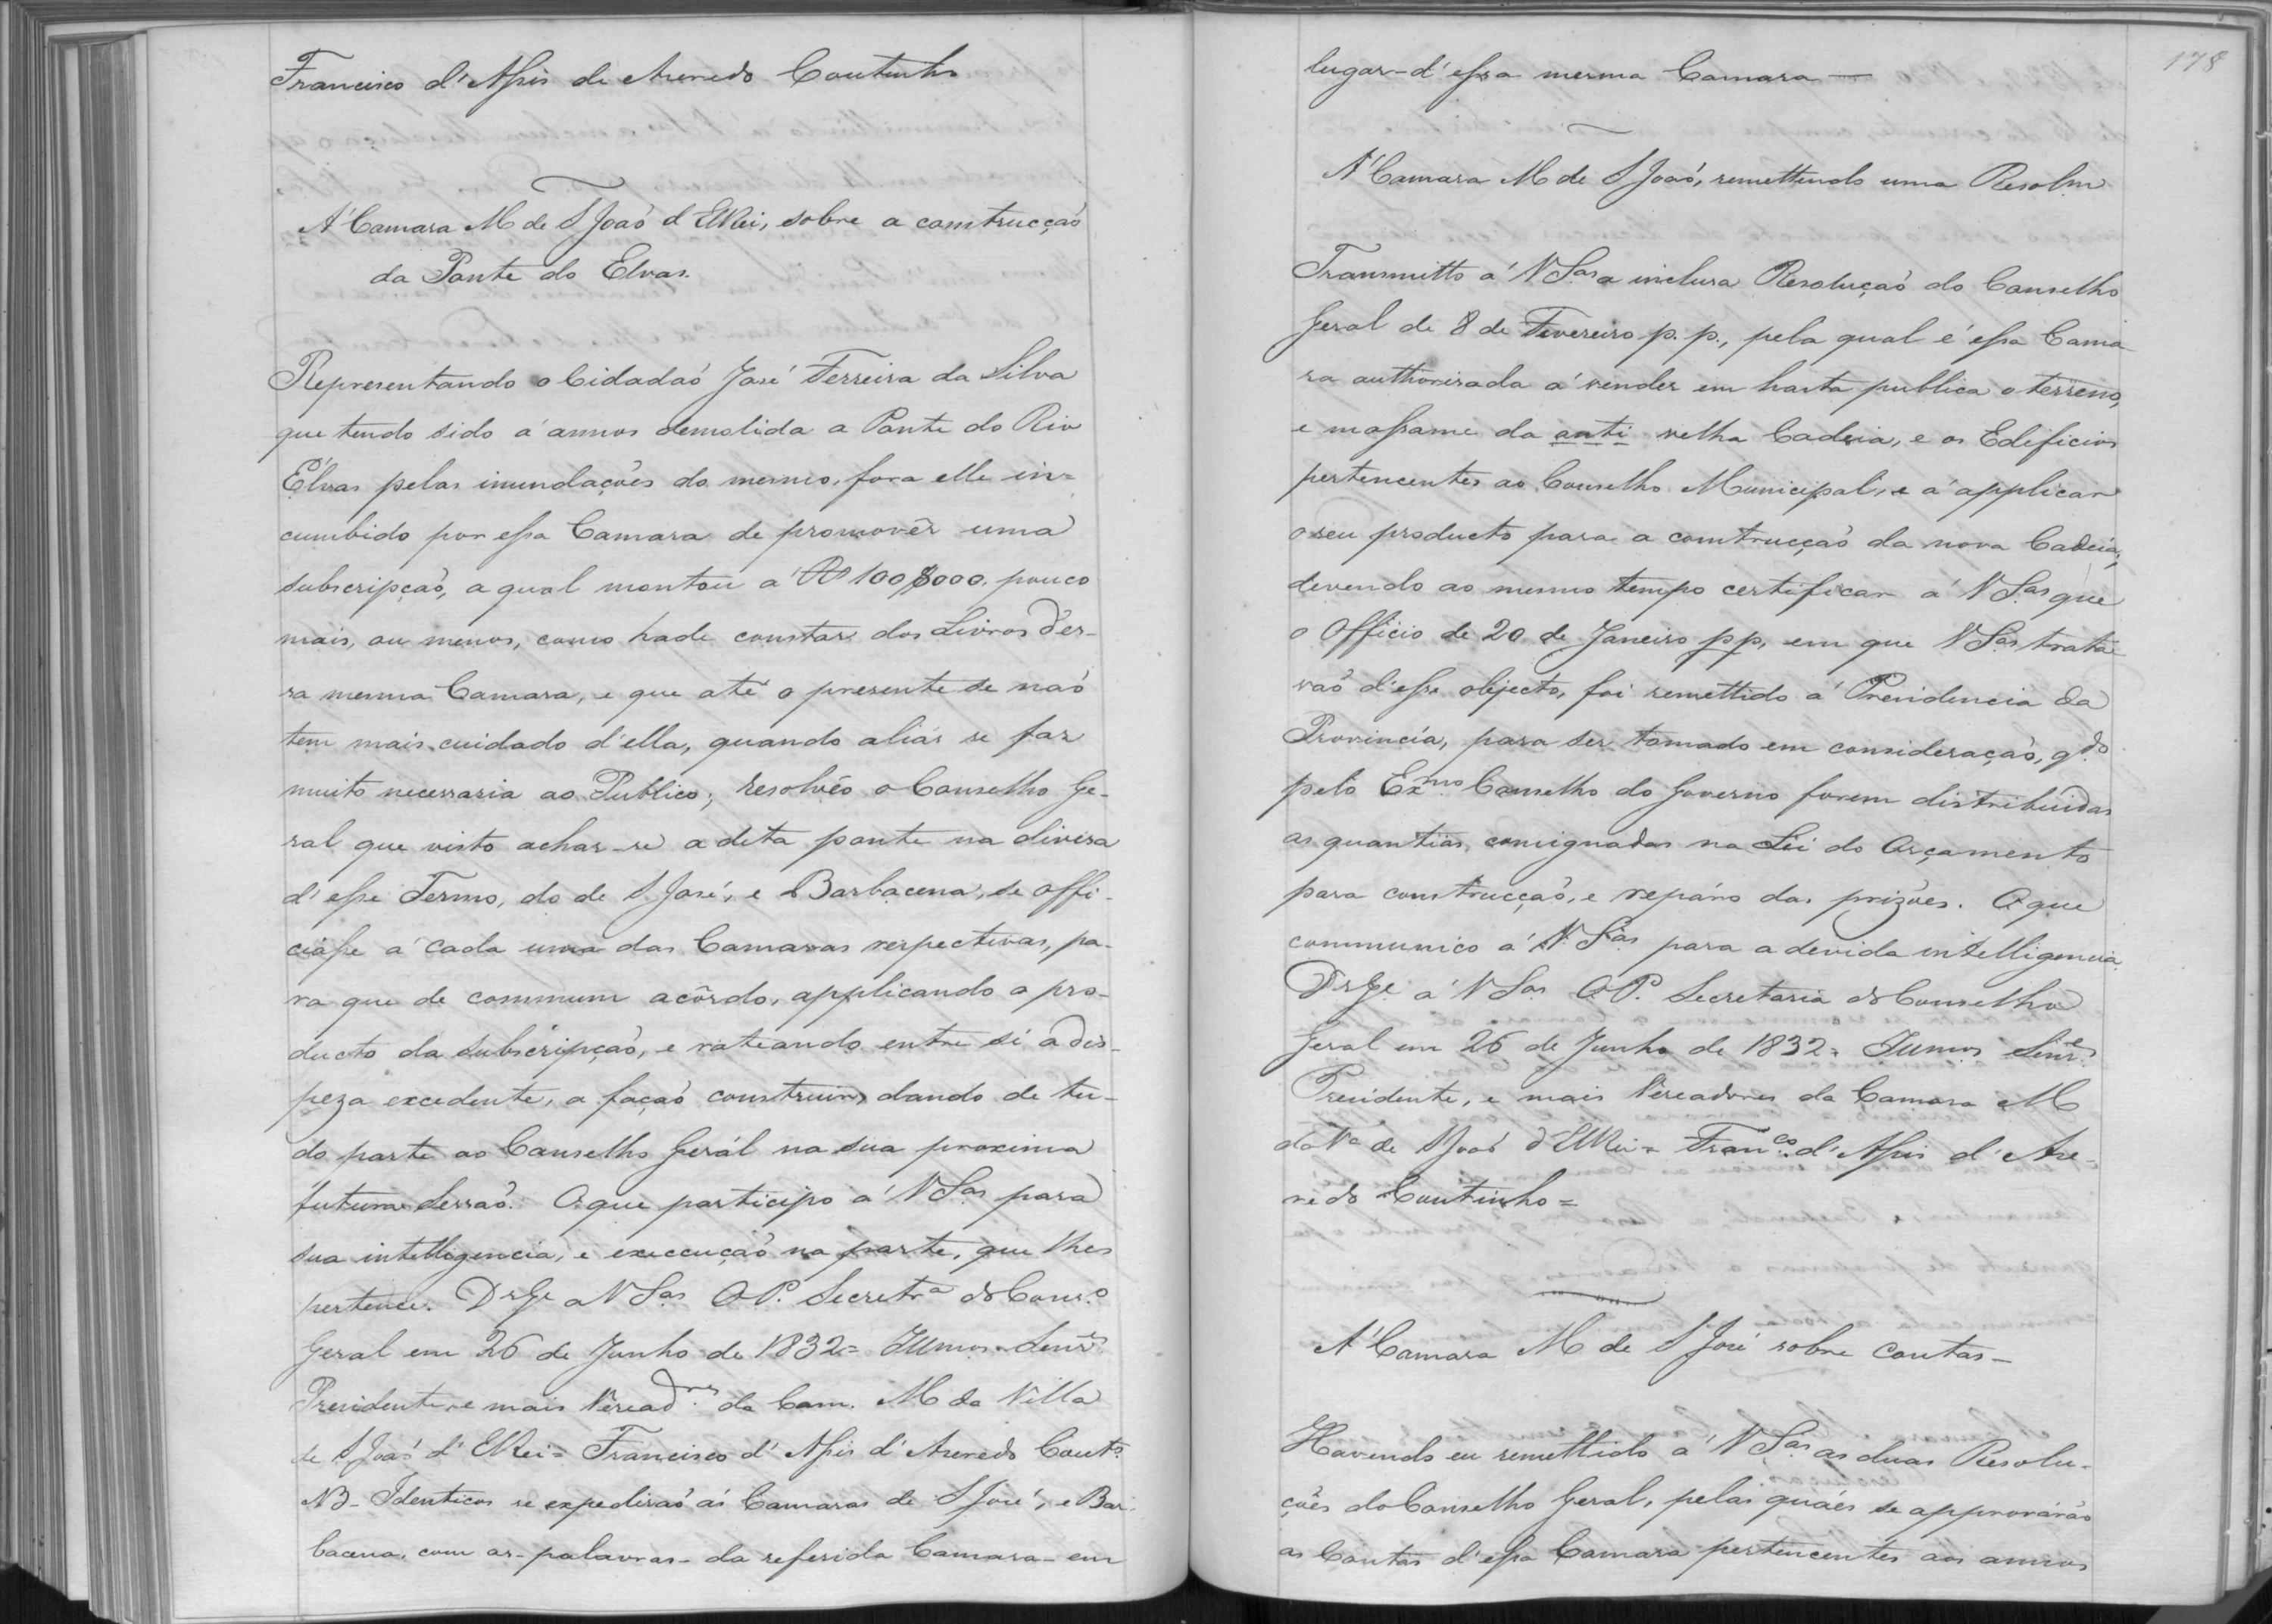 Francisco d'Assis de Azeredo Coutinho
A' Camara M de S Joaõ d'ElRei, sobre a construcçaõ
da Ponte do Elvas.
Representando o Cidadaõ José Ferreira da Silva
que tendo sido á annos demolida a Ponte do Rio
Élvas pelas inundações do mesmo, fora elle in=
cumbido por essa Camara de promovêr uma
subscripçaõ, a qual montou a' Rs 100$000, pouco
mais, ou menos, como hade constar dos Livros d'es-
sa mesma Camara, e que até o presente se naõ
tem mais cuidado d'ella, quando aliás se faz
muito necessaria ao Publico; resolvêo o Conselho Ge-
ral que visto achar-se a dita ponte na divisa
d'esse Termo, do de S José, e Barbacena, se offi-
ciasse a' cada uma das Camaras respectivas, pa-
ra que de commum acôrdo, applicando o pro-
ducto da subscripçaõ, e rateando entre si a des-
peza excedente, a façaõ construir, dando de tu-
do parte ao Conselho Gerál na sua proxima
futura Sessaõ. O que participo a' V Sas para
sua intelligencia, e execcuçaõ na parte, que lhes
pertence. Ds Ge a V Sas O.P. Secretra do Conso
Geral em 26 de Junho de 1832= Illmos Senres
Presidente, e mais Veread.res da Cam. M da Villa
de S Joaõ d'ElRei= Francisco d'Assis d'Azeredo Couto
NB- Identicos se expediraõ ás Camaras de S José, e Bar-
bacena, com as - palavras - da referida Camara - em
178
lugar - d'essa mesma Camara —
A' Camara M de S Joaõ, remettendo uma Resolm
Transmitto a' V Sas a inclusa Resoluçaõ do Conselho
Geral de 8 de Fevereiro p. p., pela qual é essa Cama-
ra authorisada a' vender em hasta publica o terreno,
e massame da anti velha Cadeia, e os Edificios
pertencentes ao Conselho Municipal, e a' applicar
o seu producto para a construcçaõ da nova Cadeia;
devendo ao mesmo tempo certificar a' V Sas que
o Officio de 20 de Janeiro pp, em que V Sas trata-
vaõ d'esse objecto, foi remettido a' Presidencia da
Provincia, para ser tomado em consideraçaõ, qdo
pelo Exmo Conselho do Governo forem distribuidas
as quantias consignadas na Lei do Orçamento
para construcçaõ, e reparo das prizões. O que
communico a' V. Sas para a devida intelligencia.
Ds Ge a' V Sas O.P. Secretaria do Conselho
Geral em 26 de Junho de 1832= Illmos Senres
Presidente, e mais Vereadores da Camara M
da Va de S Joaõ d'ElRei= Franco d'Assis d'Aze-
redo Coutinho=
A' Camara M de S José sobre contas -
Havendo eu remettido a' V Sas as duas Resolu-
ções do Conselho Geral, pelas quáes se approváraõ
as Contas d'essa Camara pertencentes aos annos